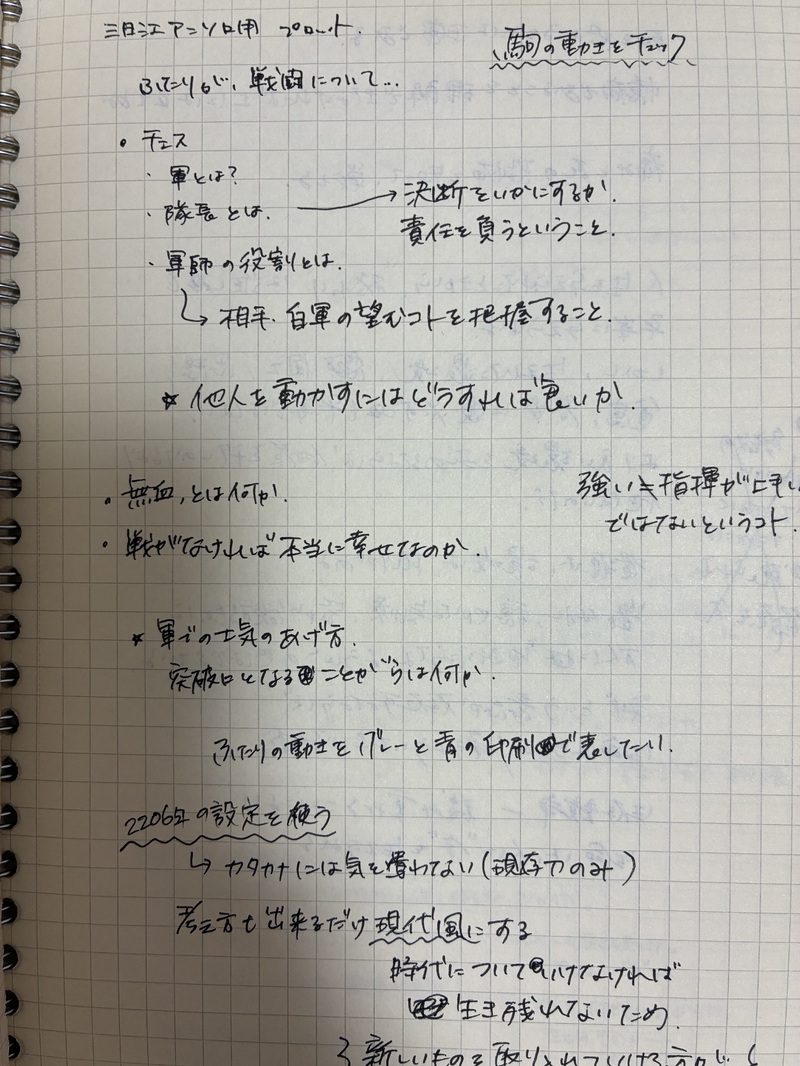 三日江アンソロ用 プロット.
駒の動きをチェック
ふたりが、戦闘について…
・チェス
・軍とは?
・隊長とは. → 決断をいかにするか.
責任を負うということ.
・軍師の役割とは.
↳ 相手、自軍の望むコトを把握すること.
☆ 他人を動かすにはどうすれば良いか.
・無血、とは何か.
強い≒指揮が上手い
ではないというコト.
・戦がなければ本当に幸せなのか.
☆ 軍での士気のあげ方.
突破口となることがらは何か.
ふたりの動きをグレーと青の印刷で表したい.
2206年の設定を使う
↳ カタカナには気を遣わない(現存刀のみ)
考え方も出来るだけ現代風にする
時代についていけなければ
生き残れないため.
新しいものを取り入れていける方が